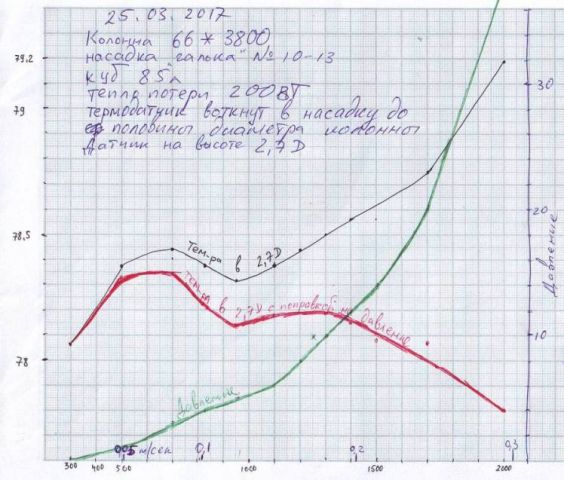 25.03.2017
Колонна 66*3800
79,2
насадка "галька" № 10-13
куб 85л
30
тепло потери 200ВТ
79
термодатчик воткнут в насадку до
половины диаметра колонны
датчик на высоте 2,7D
20
78,5
Тем-ра в 2,7D
Давление
Тем-ра в 2,7D с поправкой на давление
10
78
Давление
0,05 м/сек 0,1 0,2 0,3
300 400 500 1000 1500 2000